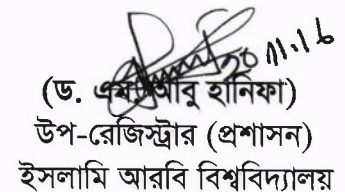 20.11.16
(ড. এম. আবু হানিফা)
উপ-রেজিস্ট্রার (প্রশাসন)
ইসলামি আরবি বিশ্ববিদ্যালয়